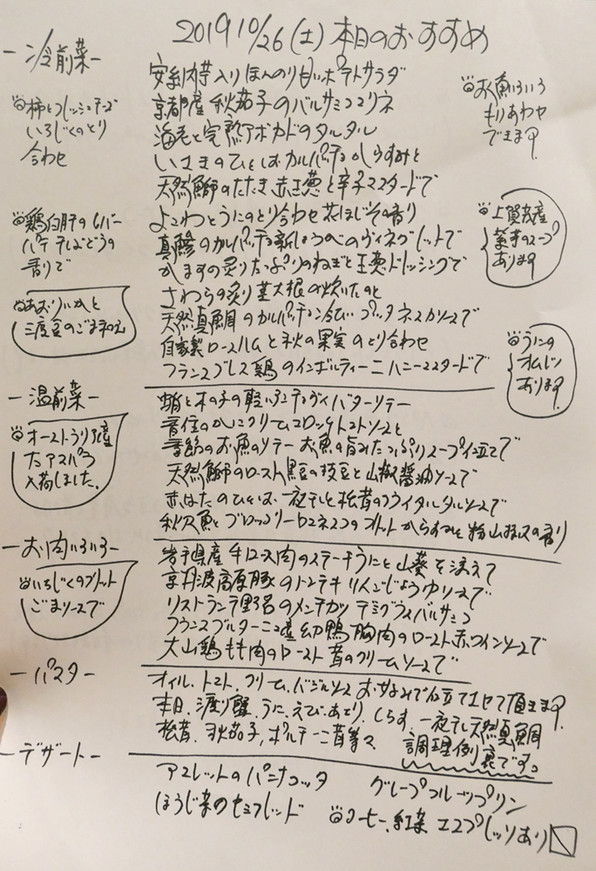 2019 10/26(土)本日のおすすめ
ー冷前菜ー
安納芋入りほんのり甘いポテトサラダ
京都産 秋茄子のバルサミコマリネ
海老と完熟アボカドのタルタル
いさきのひとしおカルパッチョからすみと
天然鰤のたたき 赤玉葱と辛子マスタードで
よこわとうにのとり合わせ 花ほじその香り
真鯵のカルパッチョ 新しょうがのヴィネグレットで
かますの炙り たっぷりのねぎと玉葱ドレッシングで
さわらの炙り 大根の炊いたのと
天然真鯛のカルパッチョ 冷たいプッタネスカソースで
自家製ロースハムと秋の果実のとり合わせ
フランスブレス鶏のインボルティーニ ハニーマスタードで
柿とフレッシュチーズ
いちじくのとり
合わせ
鶏白肝のレバー
パテ 干しぶどうの
香りで
あおりいかと
三度豆のごま和え
お魚いろいろ
もりあわせ
できます。
上賀茂産
あります
うにの
オムレツ
あります。
ー温前菜ー
蛸と木の子の軽い バターソテー
かにクリームコロッケ トマトソースと
季節のお魚のソテー お魚の旨みたっぷりスープ仕立て
天然鰤のロースト 黒豆の枝豆と山椒醤油ソースで
赤はたのひとしお 一夜干しと松茸のフライ タルタルソースで
秋刀魚とブロッコリーロマネスコの からすみと 香り
オーストラリア産
アスパラ
入荷しました。
ーお肉いろいろー
岩手県産牛ロース肉のステーキ うにと山葵を添えて
京丹波高原豚のトンテキ りんごじょうゆソースで
リストランテ野呂のメンチカツ デミグラスバルサミコ
フランスブルターニュ産 幼鴨胸肉のロースト 赤ワインソースで
大山鶏もも肉のロースト 茸のクリームソースで
いちじくのフリット
ごまソースで
ーパスターー
オイル、トマト、クリーム、バジルソース お好みで仕立てさせて頂きます。
本日、渡り蟹、うに、えび、あさり、しらす、一夜干し天然真鯛
松茸、秋茄子、ポルチーニ茸等々 調理例裏です。
ーデザートー
アメレットのパンナコッタ グレープフルーツプリン
ほうじ茶のセミフレッド コーヒー、紅茶 エスプレッソあり